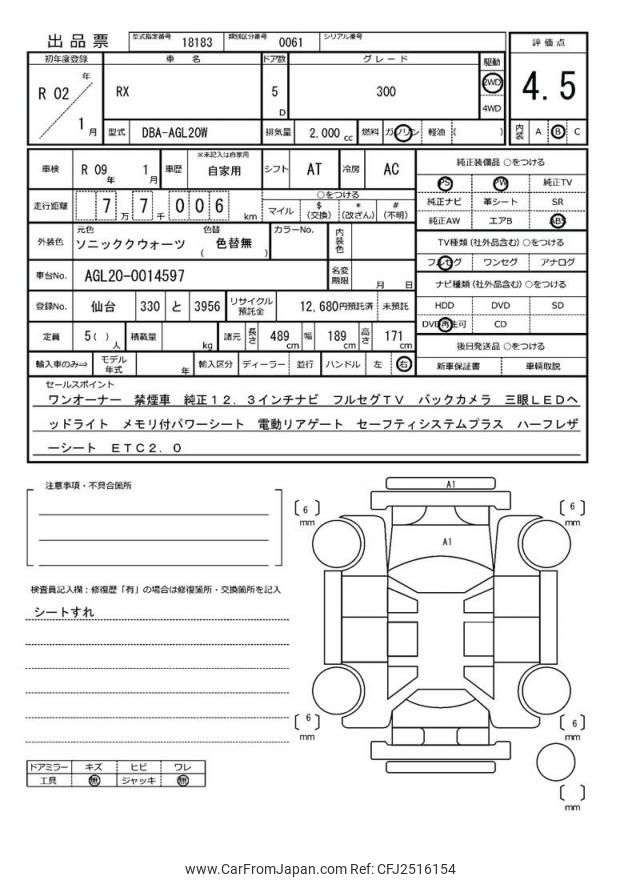 出品票
型式指定番号 18183 類別区分番号 0061 シリアル番号
初年度登録 車名 ドア数 グレード 駆動 評価点
R 02 年 1 月 RX 5 D 300 2WD 4WD 4.5
型式 DBA-AGL20W 排気量 2,000 cc 燃料 ガソリン 軽油 ( ) 内装 A B C
車検 R 09 年 1 月 車歴 ※未記入は自家用 自家用 シフト AT 冷房 AC
走行距離 7 万 7 千 0 0 6 km ○をつける マイル $ (交換) * (改ざん) # (不明)
外装色 元色 ソニッククウォーツ 色替 ( 色替無 ) カラーNo. 内装色
車台No. AGL20-0014597 名変期限 月 日
登録No. 仙台 330 と 3956 リサイクル預託金 12,680円預託済 未預託
定員 5 ( ) 人 積載量 kg 諸元 長さ 489 cm 幅 189 cm 高さ 171 cm
輸入車のみ⇒ モデル年式 年 輸入区分 ディーラー 並行 ハンドル 左 右
純正装備品 ○をつける
PS PW 純正TV
純正ナビ 革シート SR
純正AW エアB ABS
TV種類 (社外品含む) ○をつける
フルセグ ワンセグ アナログ
ナビ種類 (社外品含む) ○をつける
HDD DVD SD
DVD再生可 CD
後日発送品 ○をつける
新車保証書 車輌取説
セールスポイント
ワンオーナー 禁煙車 純正12.3インチナビ フルセグTV バックカメラ 三眼LEDヘ
ッドライト メモリ付パワーシート 電動リアゲート セーフティシステムプラス ハーフレザ
ーシート ETC2.0
注意事項・不具合箇所
検査員記入欄:修復歴「有」の場合は修復箇所・交換箇所を記入
シートすれ
ドアミラー キズ ヒビ ワレ
工具 無 ジャッキ 無
A1
A1
[ 6 ] mm
[ 6 ] mm
[ 6 ] mm
[ 6 ] mm
[ ] mm
www.CarFromJapan.com Ref: CFJ2516154